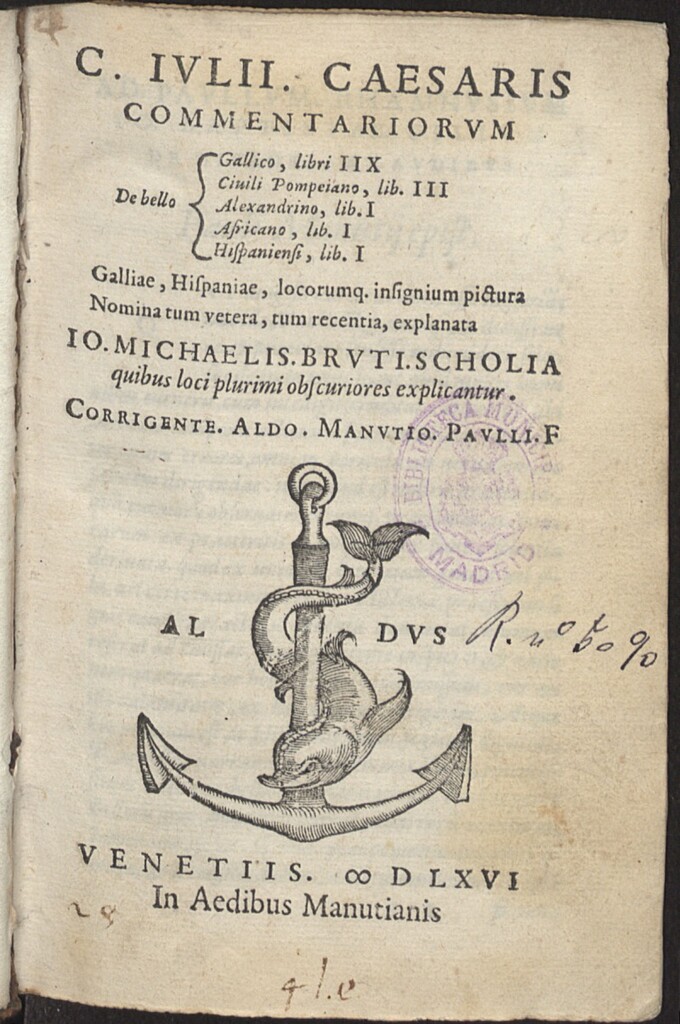 C. IVLII. CAESARIS
COMMENTARIORVM
De bello
Gallico, libri IIX
Ciuili Pompeiano, lib. III
Alexandrino, lib. I
Africano, lib. I
Hiſpanienſi, lib. I
Galliae, Hiſpaniae, locorumq. inſignium pictura
Nomina tum vetera, tum recentia, explanata
IO. MICHAELIS. BRVTI. SCHOLIA
quibus loci plurimi obſcuriores explicantur.
CORRIGENTE. ALDO. MANVTIO. PAVLLI. F
BIBLIOTECA
MADRID
AL DVS
R. nº
VENETIIS. ∞ D LXVI
In Aedibus Manutianis
28